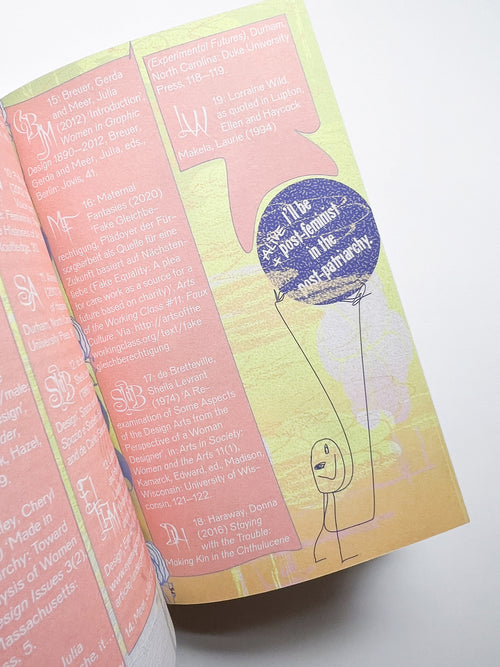 15: Breuer, Gerda
and Meer, Julia
(2012) ‘Introduction’,
Women in Graphic
Design 1890–2012, Breuer,
Gerda and Meer, Julia, eds.,
Berlin: Jovis, 41.
16: Maternal
Fantasies (2020)
‘Fake Gleichbe-
rechtigung. Plädoyer der Für-
sorgearbeit als Quelle für eine
Zukunft basiert auf Nächsten-
liebe (Fake Equality: A plea
for care work as a source for a
future based on charity), Arts
of the Working Class #11. Faux
Culture. via: http://artsofthe
workingclass.org/text/fake
gleichberechtigung
SLB
17: de Bretteville,
Sheila Levrant
(1974) ‘A Re-
examination of Some Aspects
of the Design Arts from the
Perspective of a Woman
Designer’ in: Arts in Society:
Women and the Arts 11(1),
Kamarck, Edward, ed., Madison,
Wisconsin: University of Wis-
consin, 121–122.
DH
18: Haraway, Donna
(2016) Staying
with the Trouble:
Making Kin in the Chthulucene
(Experimental Futures), Durham,
North Carolina: Duke University
Press, 118–119.
LW
19: Lorraine Wild,
as quoted in Lupton,
Ellen and Haycock
Makela, Laurie (1994)
ALIVE
i'll be
post-feminist
in the
post-patriarchy.
SA
Durham,
University
Hazel,
Cheryl
‘Made in
Toward
Analysis of Women
Design Issues 3(2)
Massachusetts:
s. 5.
Julia